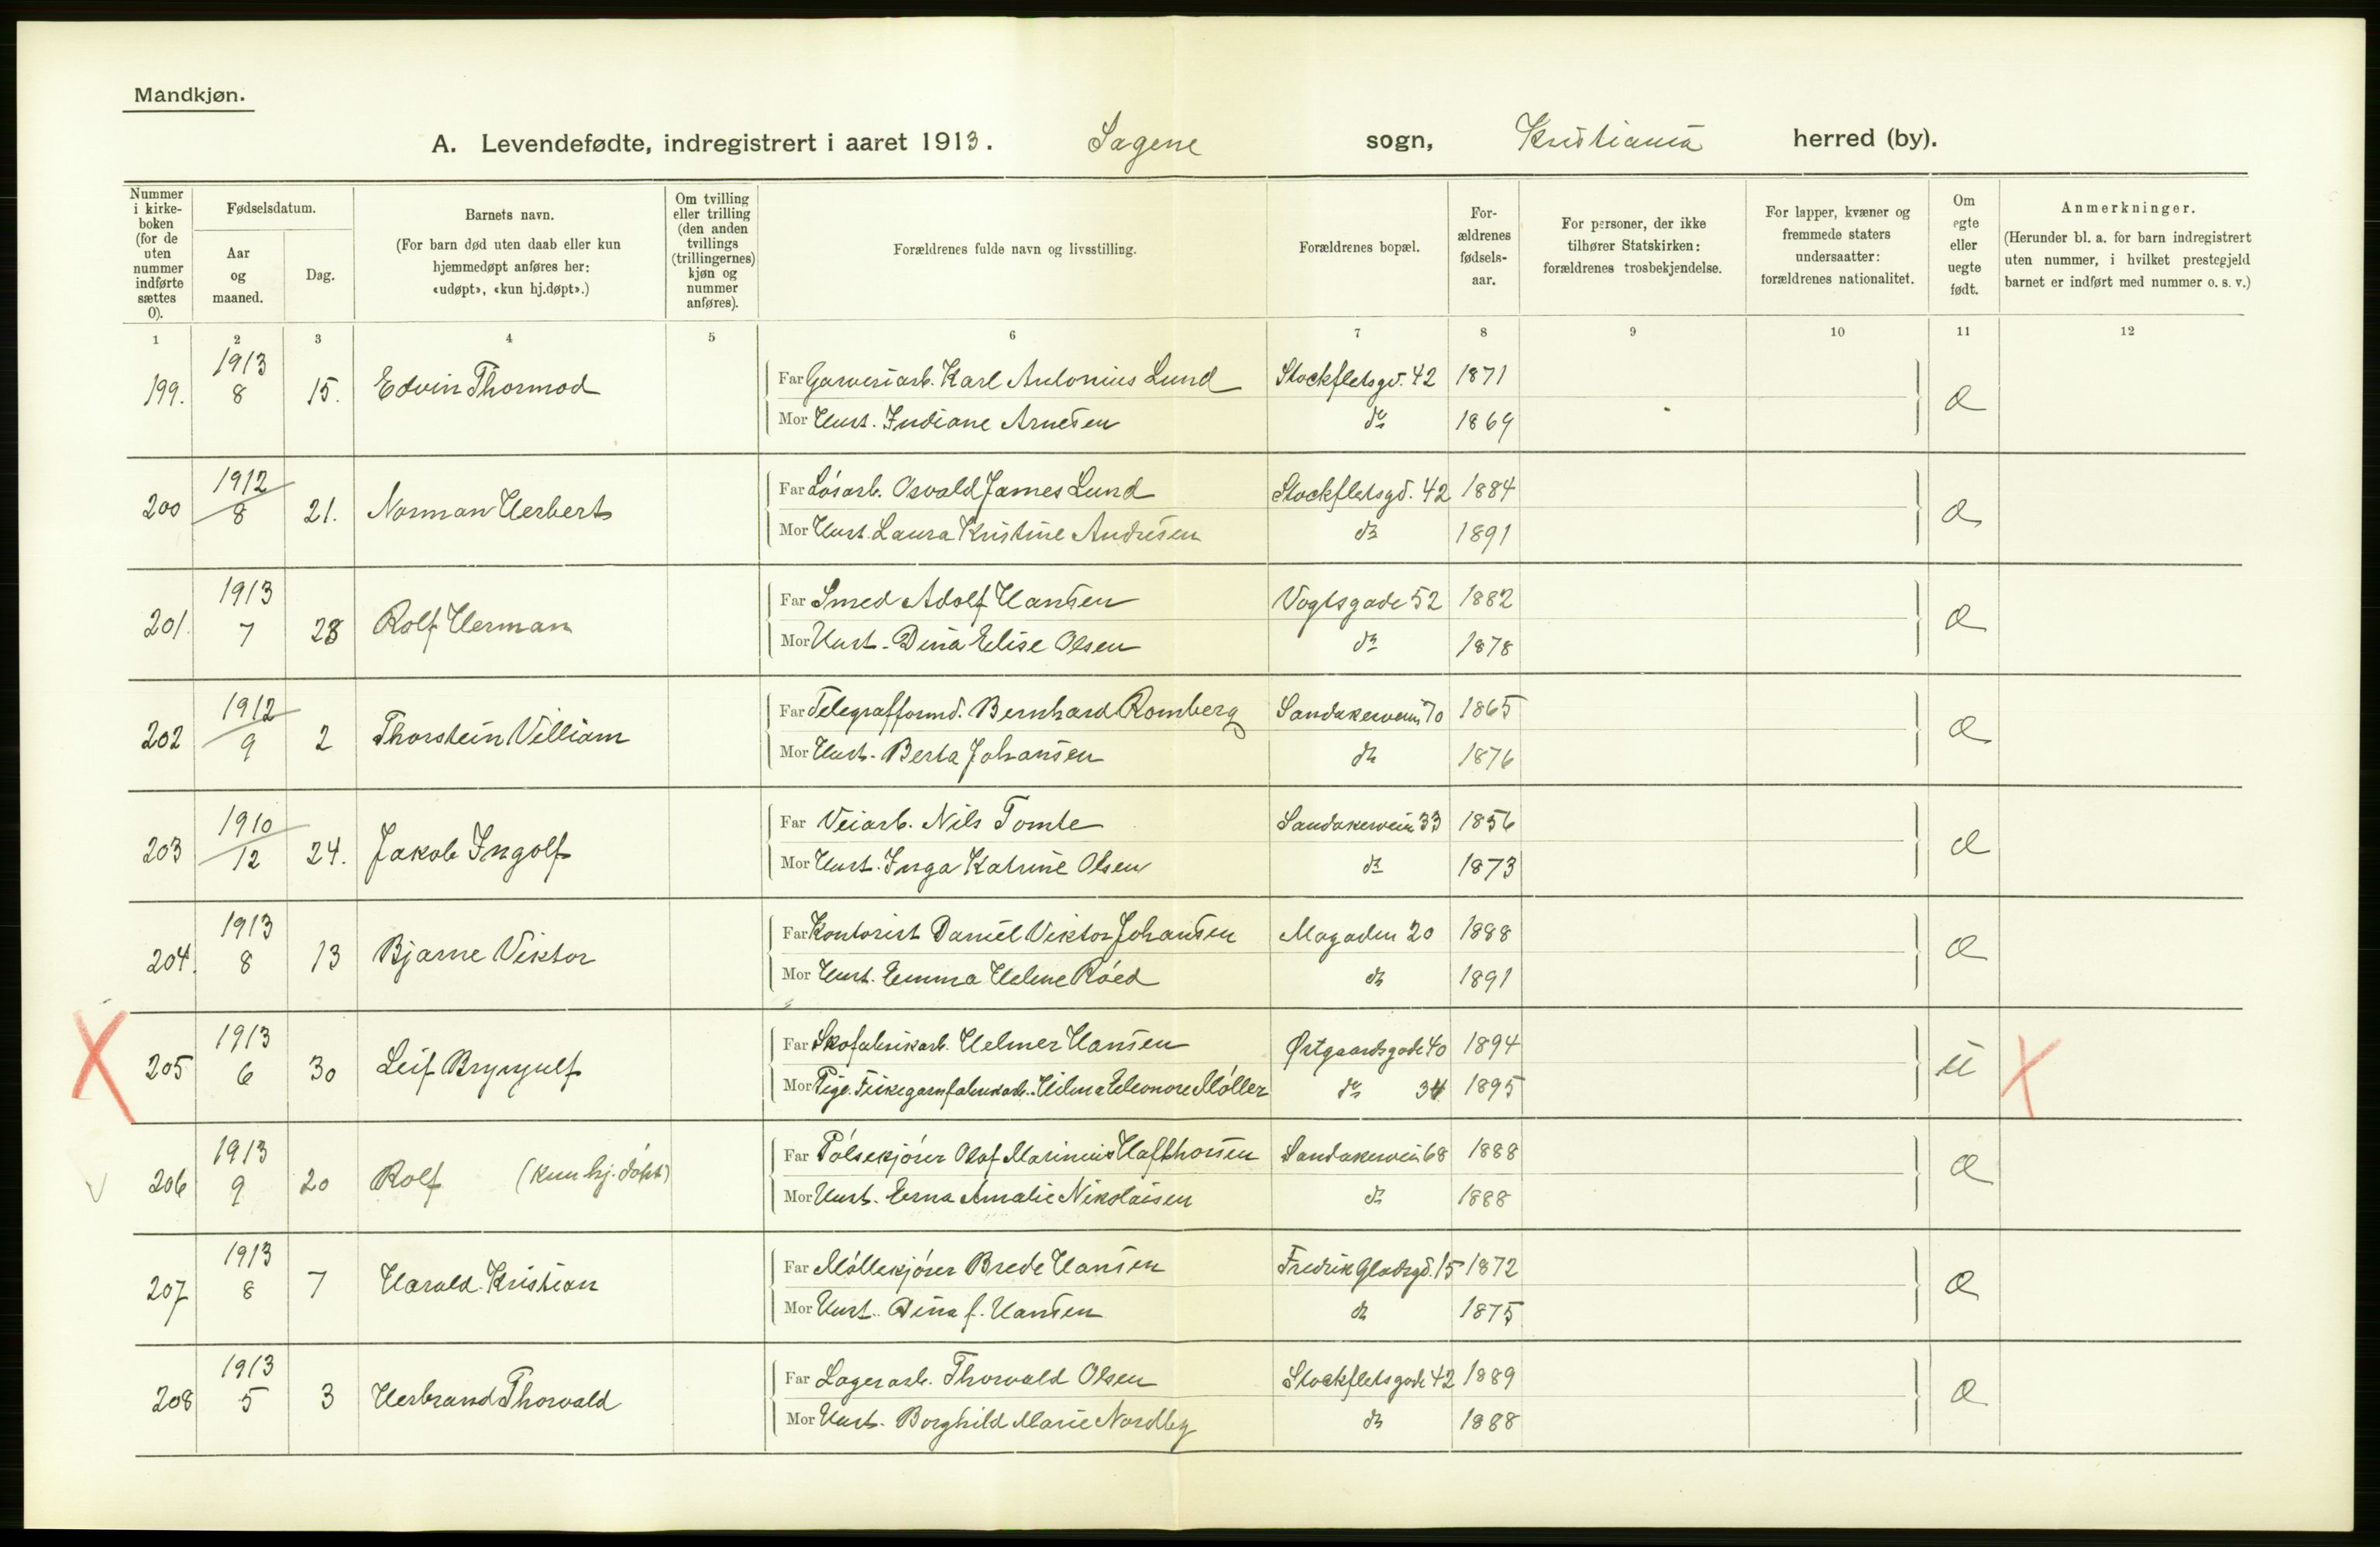 Mandkjøn.
A. Levendefødte, indregistrert i aaret 1913. Sagene sogn, Kristiania herred (by).
Nummer i kirke-boken (for de uten nummer indførte sættes 0).
Fødselsdatum.
Aar og maaned.
Dag.
Barnets navn.
(For barn død uten daab eller kun hjemmedøpt anføres her: «udøpt», «kun hj.døpt».)
Om tvilling eller trilling (den anden tvillings (trillingernes) kjøn og nummer anføres).
Forældrenes fulde navn og livsstilling.
Forældrenes bopæl.
For-ældrenes fødsels-aar.
For personer, der ikke tilhører Statskirken: forældrenes trosbekjendelse.
For lapper, kvæner og fremmede staters undersaatter: forældrenes nationalitet.
Om egte eller uegte født.
Anmerkninger.
(Herunder bl. a. for barn indregistrert uten nummer, i hvilket prestegjeld barnet er indført med nummer o. s. v.)
1 2 3 4 5 6 7 8 9 10 11 12
199. 1913 8 15. Edvin Thormod Far Garveriarb. Karl Antonius Lund Stockfletsgd. 42 1871
Mor Hust. Indiane Arnesen do 1869
200 1912 8 21. Norman Herbert Far Løsarb. Osvald James Lund Stockfletsgd. 42 1884
Mor Hust. Laura Kristine Andresen do 1891
201. 1913 7 28 Rolf Herman Far Smed Adolf Hansen Vogtsgade 52 1882
Mor Hust. Dina Elise Olsen do 1878
202 1912 9 2 Thorstein Villiam Far Telegrafformd. Bernhard Romberg Sandakerveien 70 1865
Mor Hust. Berta Johansen do 1876
203 1910 12 24. Jakob Ingolf Far Veiarb. Nils Tomte Sandakervein 33 1856
Mor Hust. Inga Katrine Olsen do 1873
204. 1913 8 13 Bjarne Viktor Far Kontorist Daniel Viktor Johansen Magaden 20 1888
Mor Hust. Emma Helene Røed do 1891
205 1913 6 30 Leif Brynjulf Far Skofabrikarb. Helmer Hansen Østgaardsgade 40 1894 u
Mor Pige. Fiskegarnfabrikarb. Hilma Eleonore Møller do 34 1895
206 1913 9 20 Rolf (kun hj. døpt) Far Pølsekjører Olaf Marinius Hafthorsen Sandakervein 68 1888
Mor Hust. Erna Amalie Nikolaisen do 1888
207 1913 8 7 Harald Kristian Far Møllekjører Brede Hansen Fredrik Gladsgd. 15 1872
Mor Hust. Dina f. Hansen do 1875
208 1913 5 3 Herbrand Thorvald Far Lagerarb. Thorvald Olsen Stockfletsgade 42 1889
Mor Hust. Borghild Marie Nordby do 1888